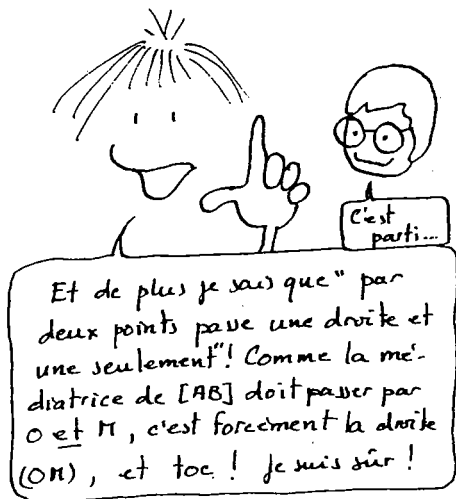 C'est
parti...
Et de plus je sais que "par
deux points passe une droite et
une seulement"! Comme la mé-
diatrice de [AB] doit passer par
O et M, c'est forcément la droite
(OM), et toc ! Je suis sûr !